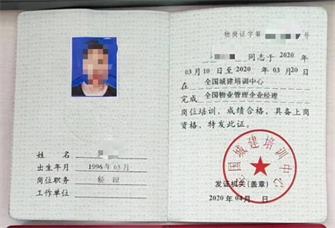 姓名
出生年月 1996年03月
岗位职务 经理
工作单位
物岗证字第 号
同志于2020年
03月10日至2020年03月20日
在 全国城建培训中心
完成 全国物业管理企业经理
岗位培训，成绩合格，具备上岗
资格，特发此证。
发证机关(盖章)
2020年04月 日
全国城建培训中心